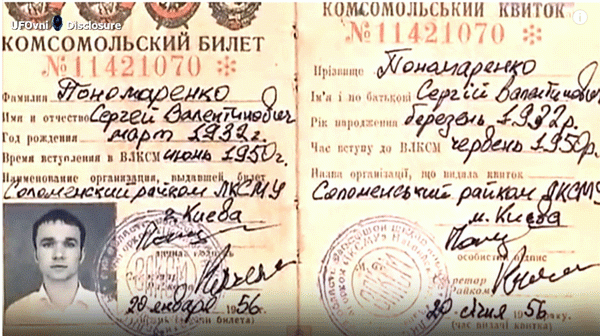 UFOvni Disclosure
КОМСОМОЛЬСКИЙ БИЛЕТ
№11421070 *
Фамилия Пономаренко
Имя и отчество Сергей Валентинович
Год рождения март 1932 г.
Время вступления в ВЛКСМ июнь 1950 г.
Наименование организации, выдавшей билет
Соломенский райком ЛКСМУ
г. Киева
20 января 1956 г.
КОМСОМОЛЬСЬКИЙ КВИТОК
№11421070 *
Прізвище Пономаренко
Ім'я і по батькові Сергій Валентинович
Рік народження березень 1932 р.
Час вступу до ВЛКСМ червень 1950 р.
Назва організації, що видала квиток
Соломенський райком ЛКСМУ
м. Києва
особистий підпис
20 січня 1956 року.
(час видачі квитка)